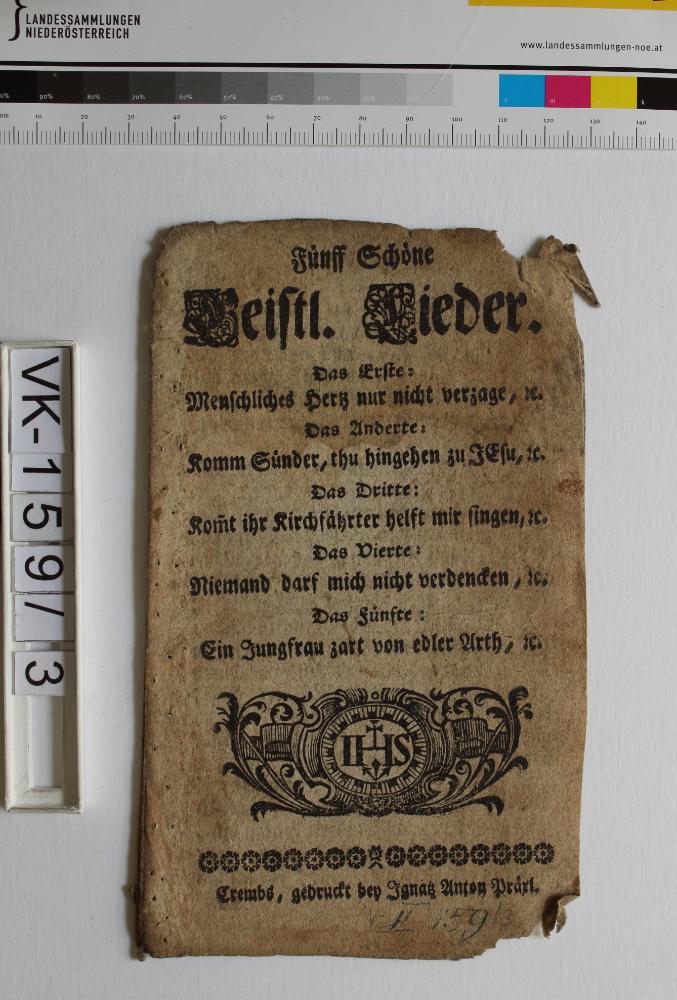 LANDESSAMMLUNGEN
NIEDERÖSTERREICH
www.landessammlungen-noe.at
90% 80% 70% 60% 50% 40% 30% 20% 10% c m y k
mm 10 20 30 40 50 60 70 80 90 100 110 120 130 140
VK-159/3
Fünff Schöne
Geistl. Lieder.
Das Erste:
Menschliches Hertz nur nicht verzage, ꝛc.
Das Anderte:
Komm Sünder, thu hingehen zu JEsu, ꝛc.
Das Dritte:
Kom̃t ihr Kirchfährter helft mir singen, ꝛc.
Das Vierte:
Niemand darf mich nicht verdencken, ꝛc.
Das Fünfte:
Ein Jungfrau zart von edler Arth, ꝛc.
IHS
Crembs, gedruckt bey Ignatz Anton Präxl.
159/3